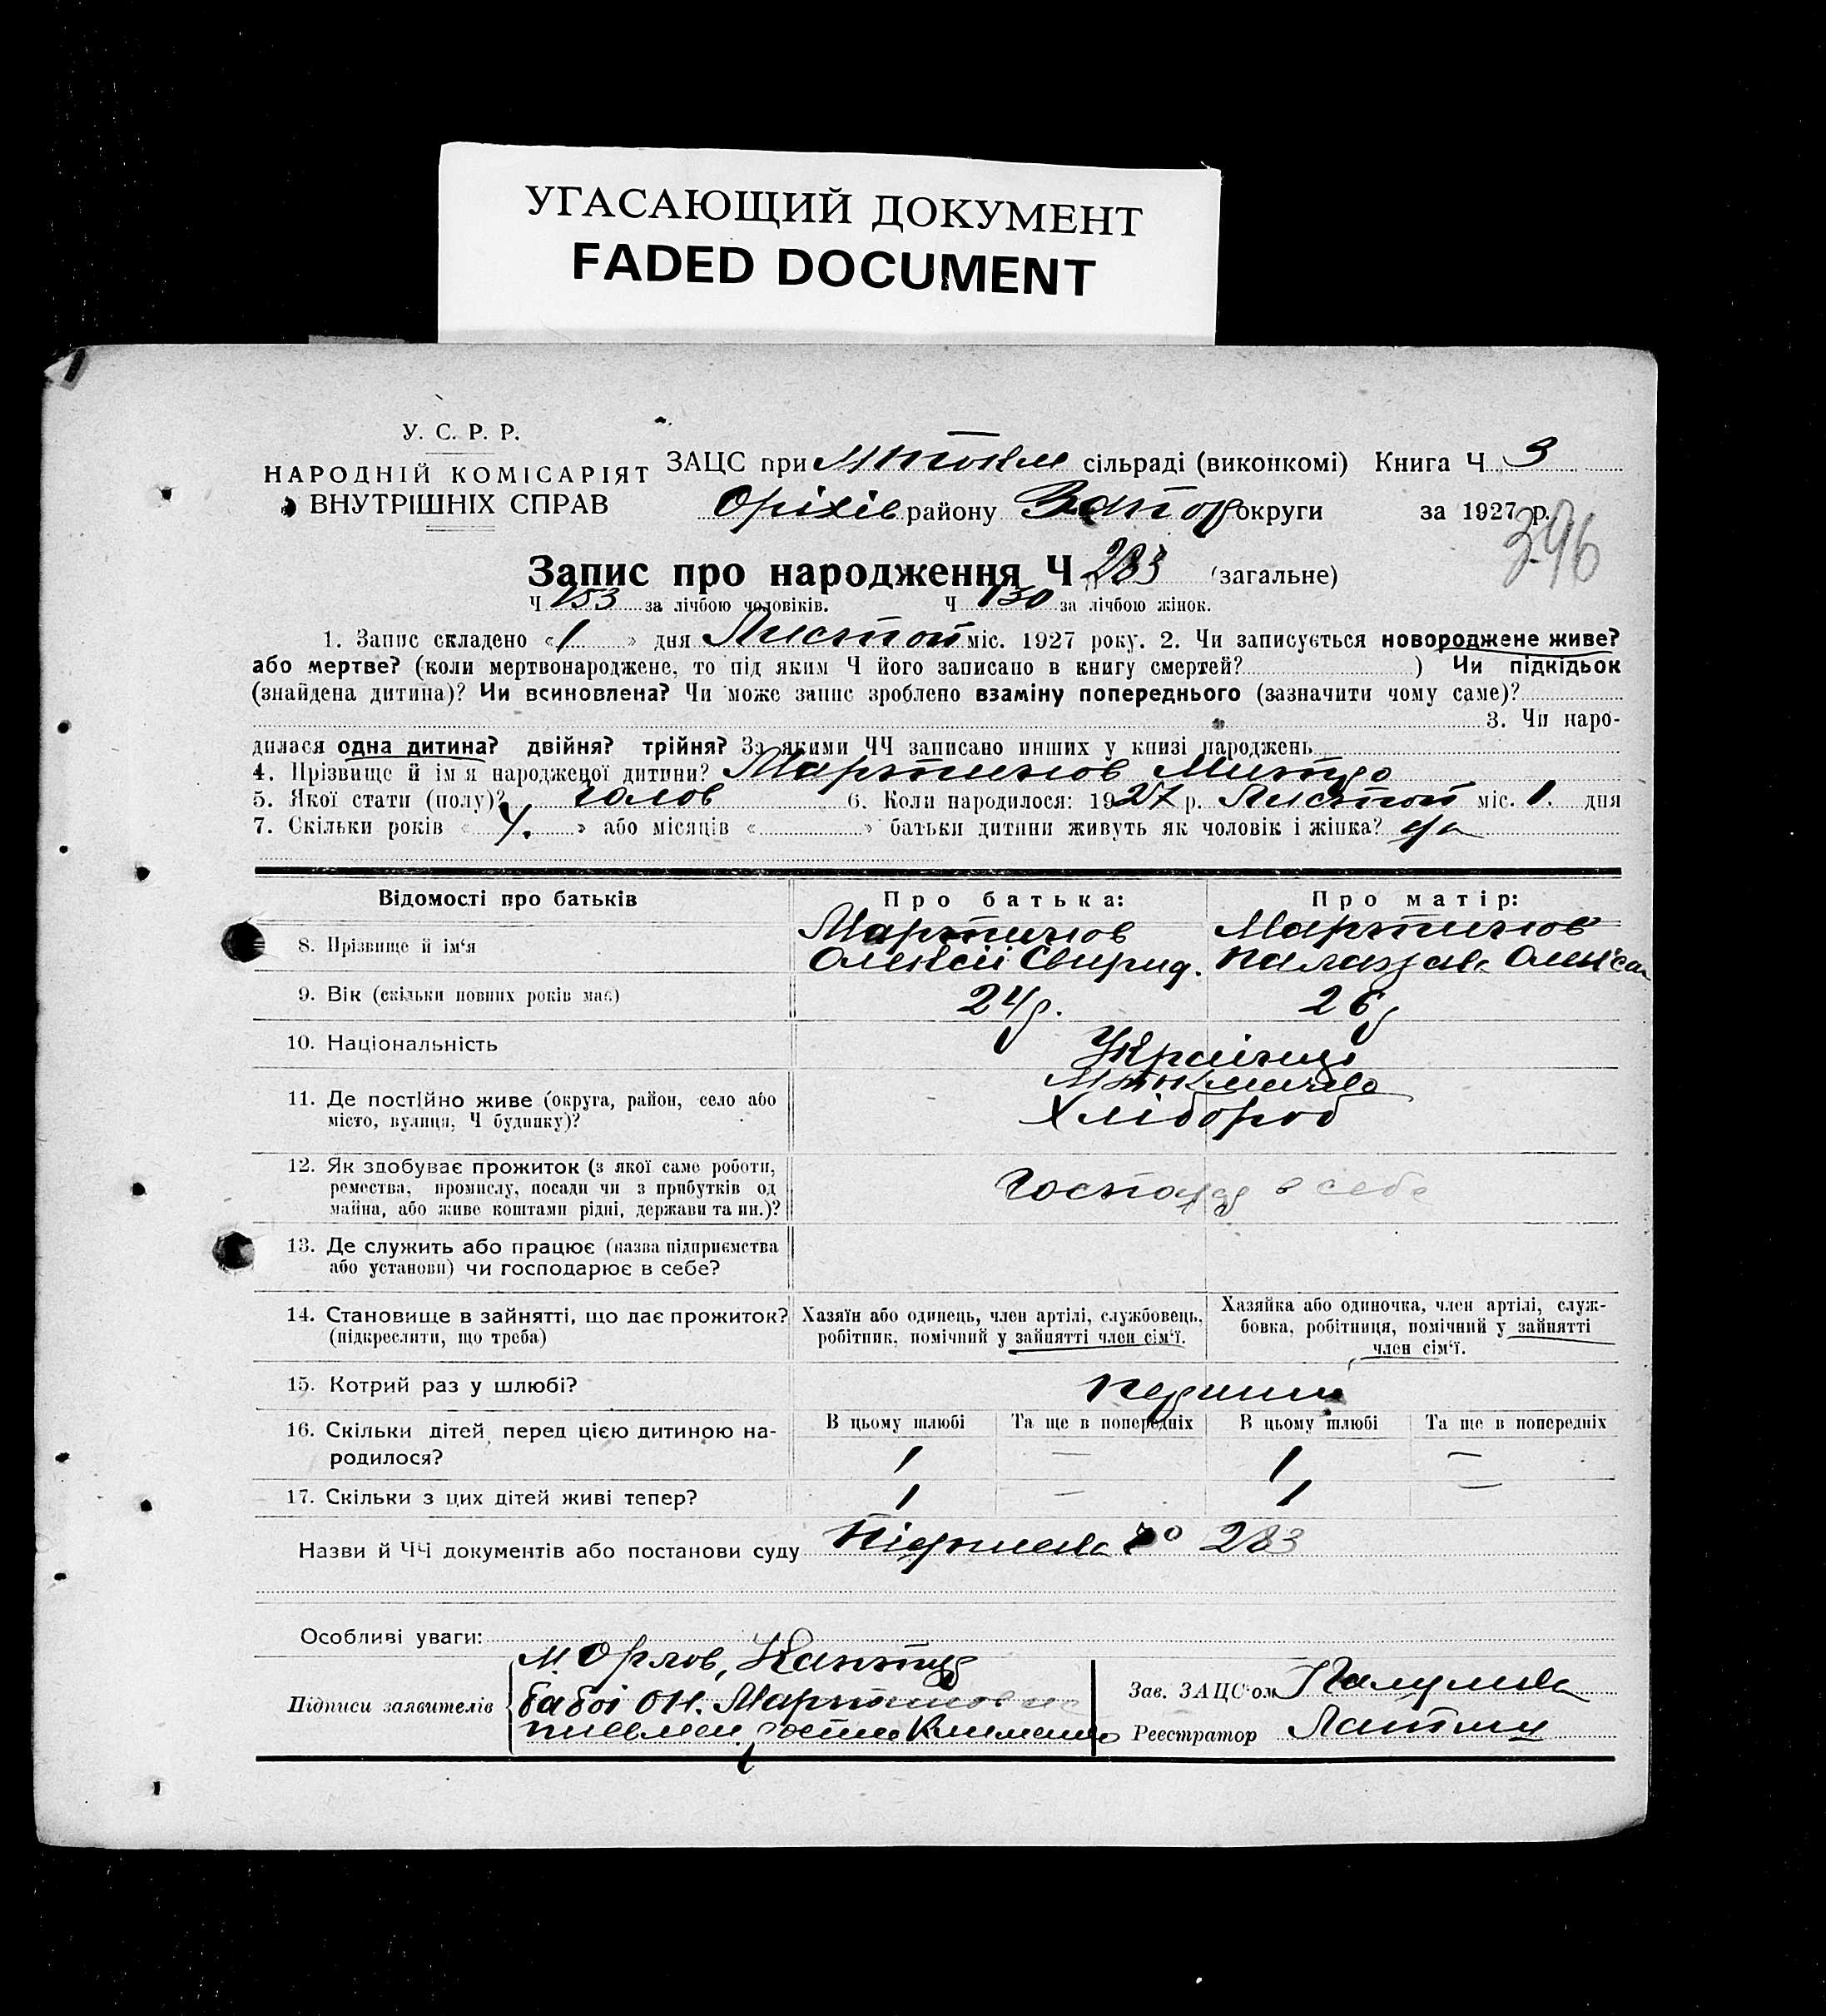 УГАСАЮЩИЙ ДОКУМЕНТ
FADED DOCUMENT
У. С. Р. Р.
НАРОДНІЙ КОМІСАРІЯТ
ВНУТРІШНІХ СПРАВ
ЗАЦС при сільраді (виконкомі) Книга Ч 3
Оріхів району Запор округи за 1927 р.
396
Запис про народження Ч 283 (загальне)
Ч 153 за лічбою чоловіків. Ч 130 за лічбою жінок.
1. Запис складено «1» дня Листоп міс. 1927 року. 2. Чи записується новороджене живе?
або мертве? (коли мертвонароджене, то під яким Ч його записано в книгу смертей? ) Чи підкідьок
(знайдена дитина)? Чи всиновлена? Чи може запис зроблено взаміну попереднього (зазначити чому саме)?
3. Чи наро-
дилася одна дитина? двійня? трійня? За якими ЧЧ записано инших у книзі народжень
4. Прізвище й ім'я народженої дитини? Мартинов
5. Якої стати (полу)? чолов 6. Коли народилося: 1927 р. Листоп міс. 1. дня
7. Скільки років « 4. » або місяців « » батьки дитини живуть як чоловік і жінка? да
Відомості про батьків Про батька: Про матір:
8. Прізвище й ім'я Мартинов Мартинов
Олексій Свирид.
9. Вік (скільки повних років має) 24р. 26р
10. Національність Українці
11. Де постійно живе (округа, район, село або
місто, вулиця, Ч будинку)?
Хлібороб
12. Як здобуває прожиток (з якої саме роботи,
ремества, промислу, посади чи з прибутків од
майна, або живе коштами рідні, держави та ин.)?
Господар в себе
13. Де служить або працює (назва підприємства
або установи) чи господарює в себе?
14. Становище в зайнятті, що дає прожиток?
(підкреслити, що треба)
Хазяїн або одинець, член артілі, службовець,
робітник, помічний у зайнятті член сім'ї.
Хазяйка або одиночка, член артілі, служ-
бовка, робітниця, помічний у зайнятті
член сім'ї.
15. Котрий раз у шлюбі?
16. Скільки дітей перед цією дитиною на-
родилося?
В цьому шлюбі Та ще в попередніх В цьому шлюбі Та ще в попередніх
1 — 1 —
17. Скільки з цих дітей живі тепер? 1 — 1 —
Назви й ЧЧ документів або постанови суду 283
Особливі уваги:
М. Орлов,
Підписи заявителів
Зав. ЗАЦС'ом
Реєстратор